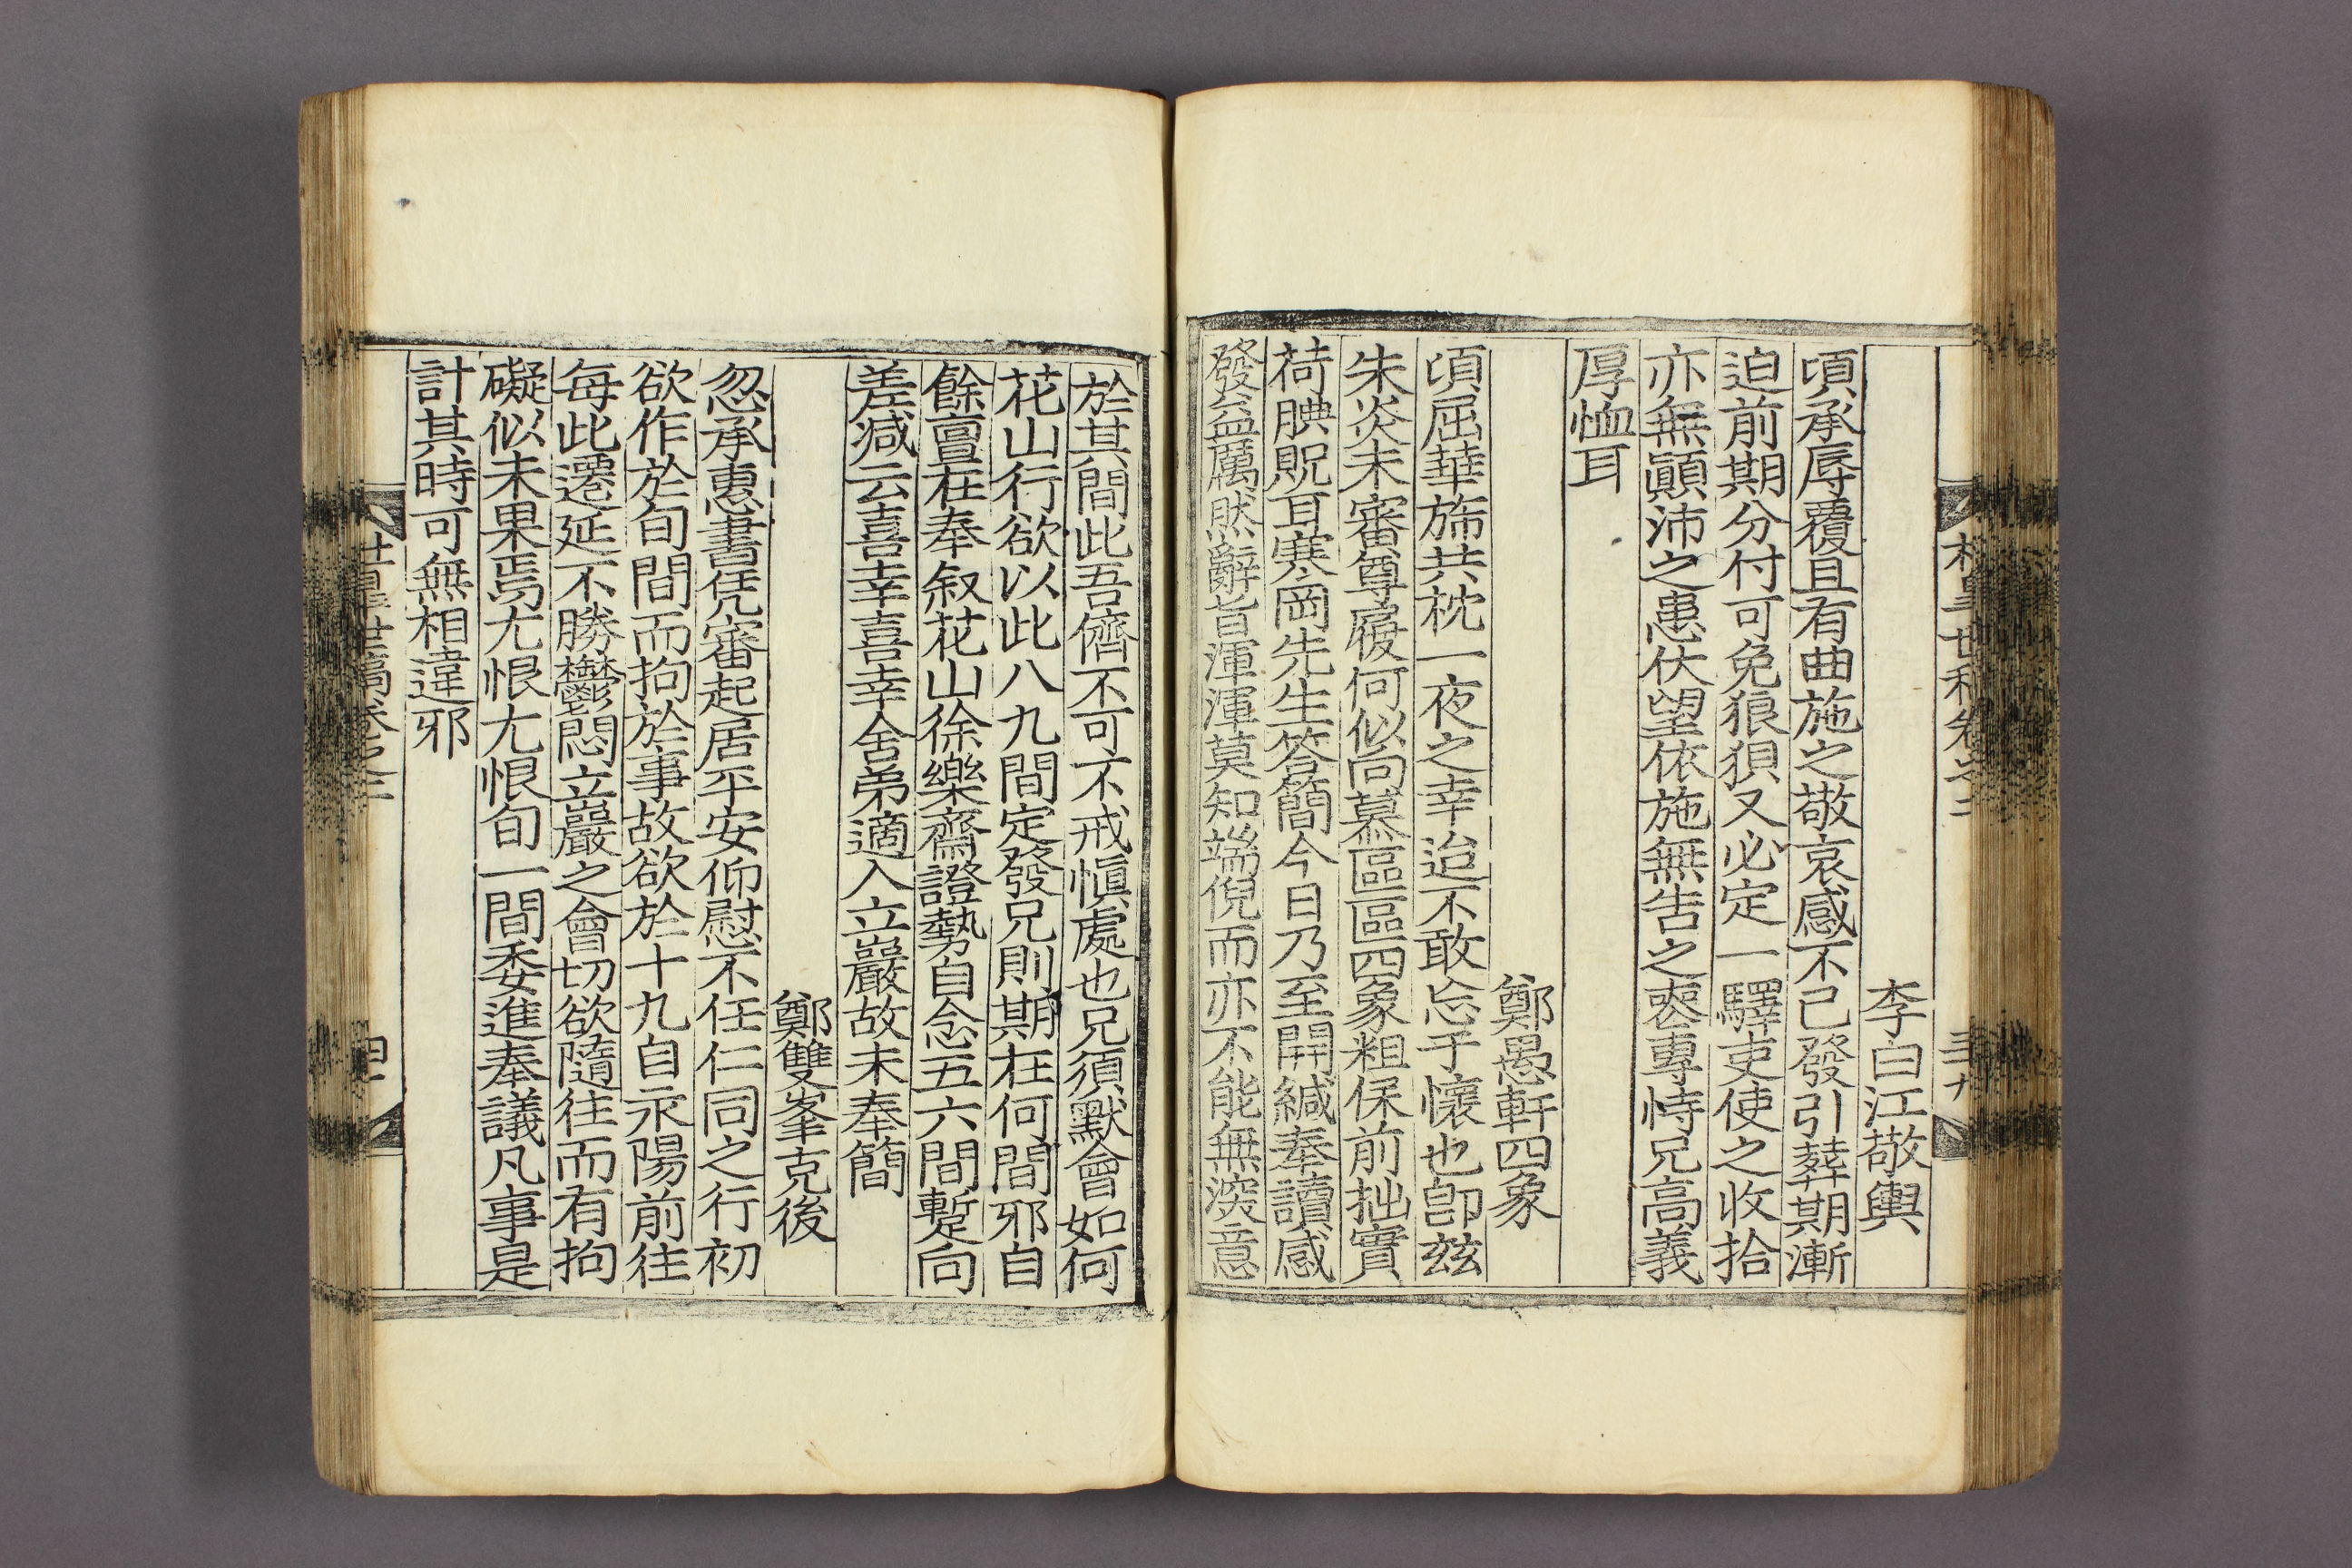 李白江敬輿
頃承辱覆且有曲施之敬哀感不已發引葬期漸
迫前期分付可免狼狽又必定一驛吏使之收拾
亦無顚沛之患伏望依施無告之喪專恃兄高義
厚恤耳
鄭愚軒四象
頃屈華旆共枕一夜之幸迨不敢忘于懷也卽玆
朱炎未審尊履何似向慕區區四象粗保前拙實
荷腆貺耳寒岡先生答簡今日乃至開緘奉讀感
發益厲然辭旨渾渾莫知端倪而亦不能無深意
於其間此吾儕不可不戒愼處也兄須默會如何
花山行欲以此八九間定發兄則期在何間邪自
餘亶在奉敍花山徐樂齋證勢自念五六間蹔向
差減云喜幸喜幸舍弟適入立巖故未奉簡
鄭雙峯克後
忽承惠書凭審起居平安仰慰不任仁同之行初
欲作於旬間而拘於事故欲於十九自永陽前往
每此遷延不勝鬱悶立巖之會切欲隨往而有拘
礙似未果焉尤恨尤恨旬一間委進奉議凡事是
計其時可無相違邪